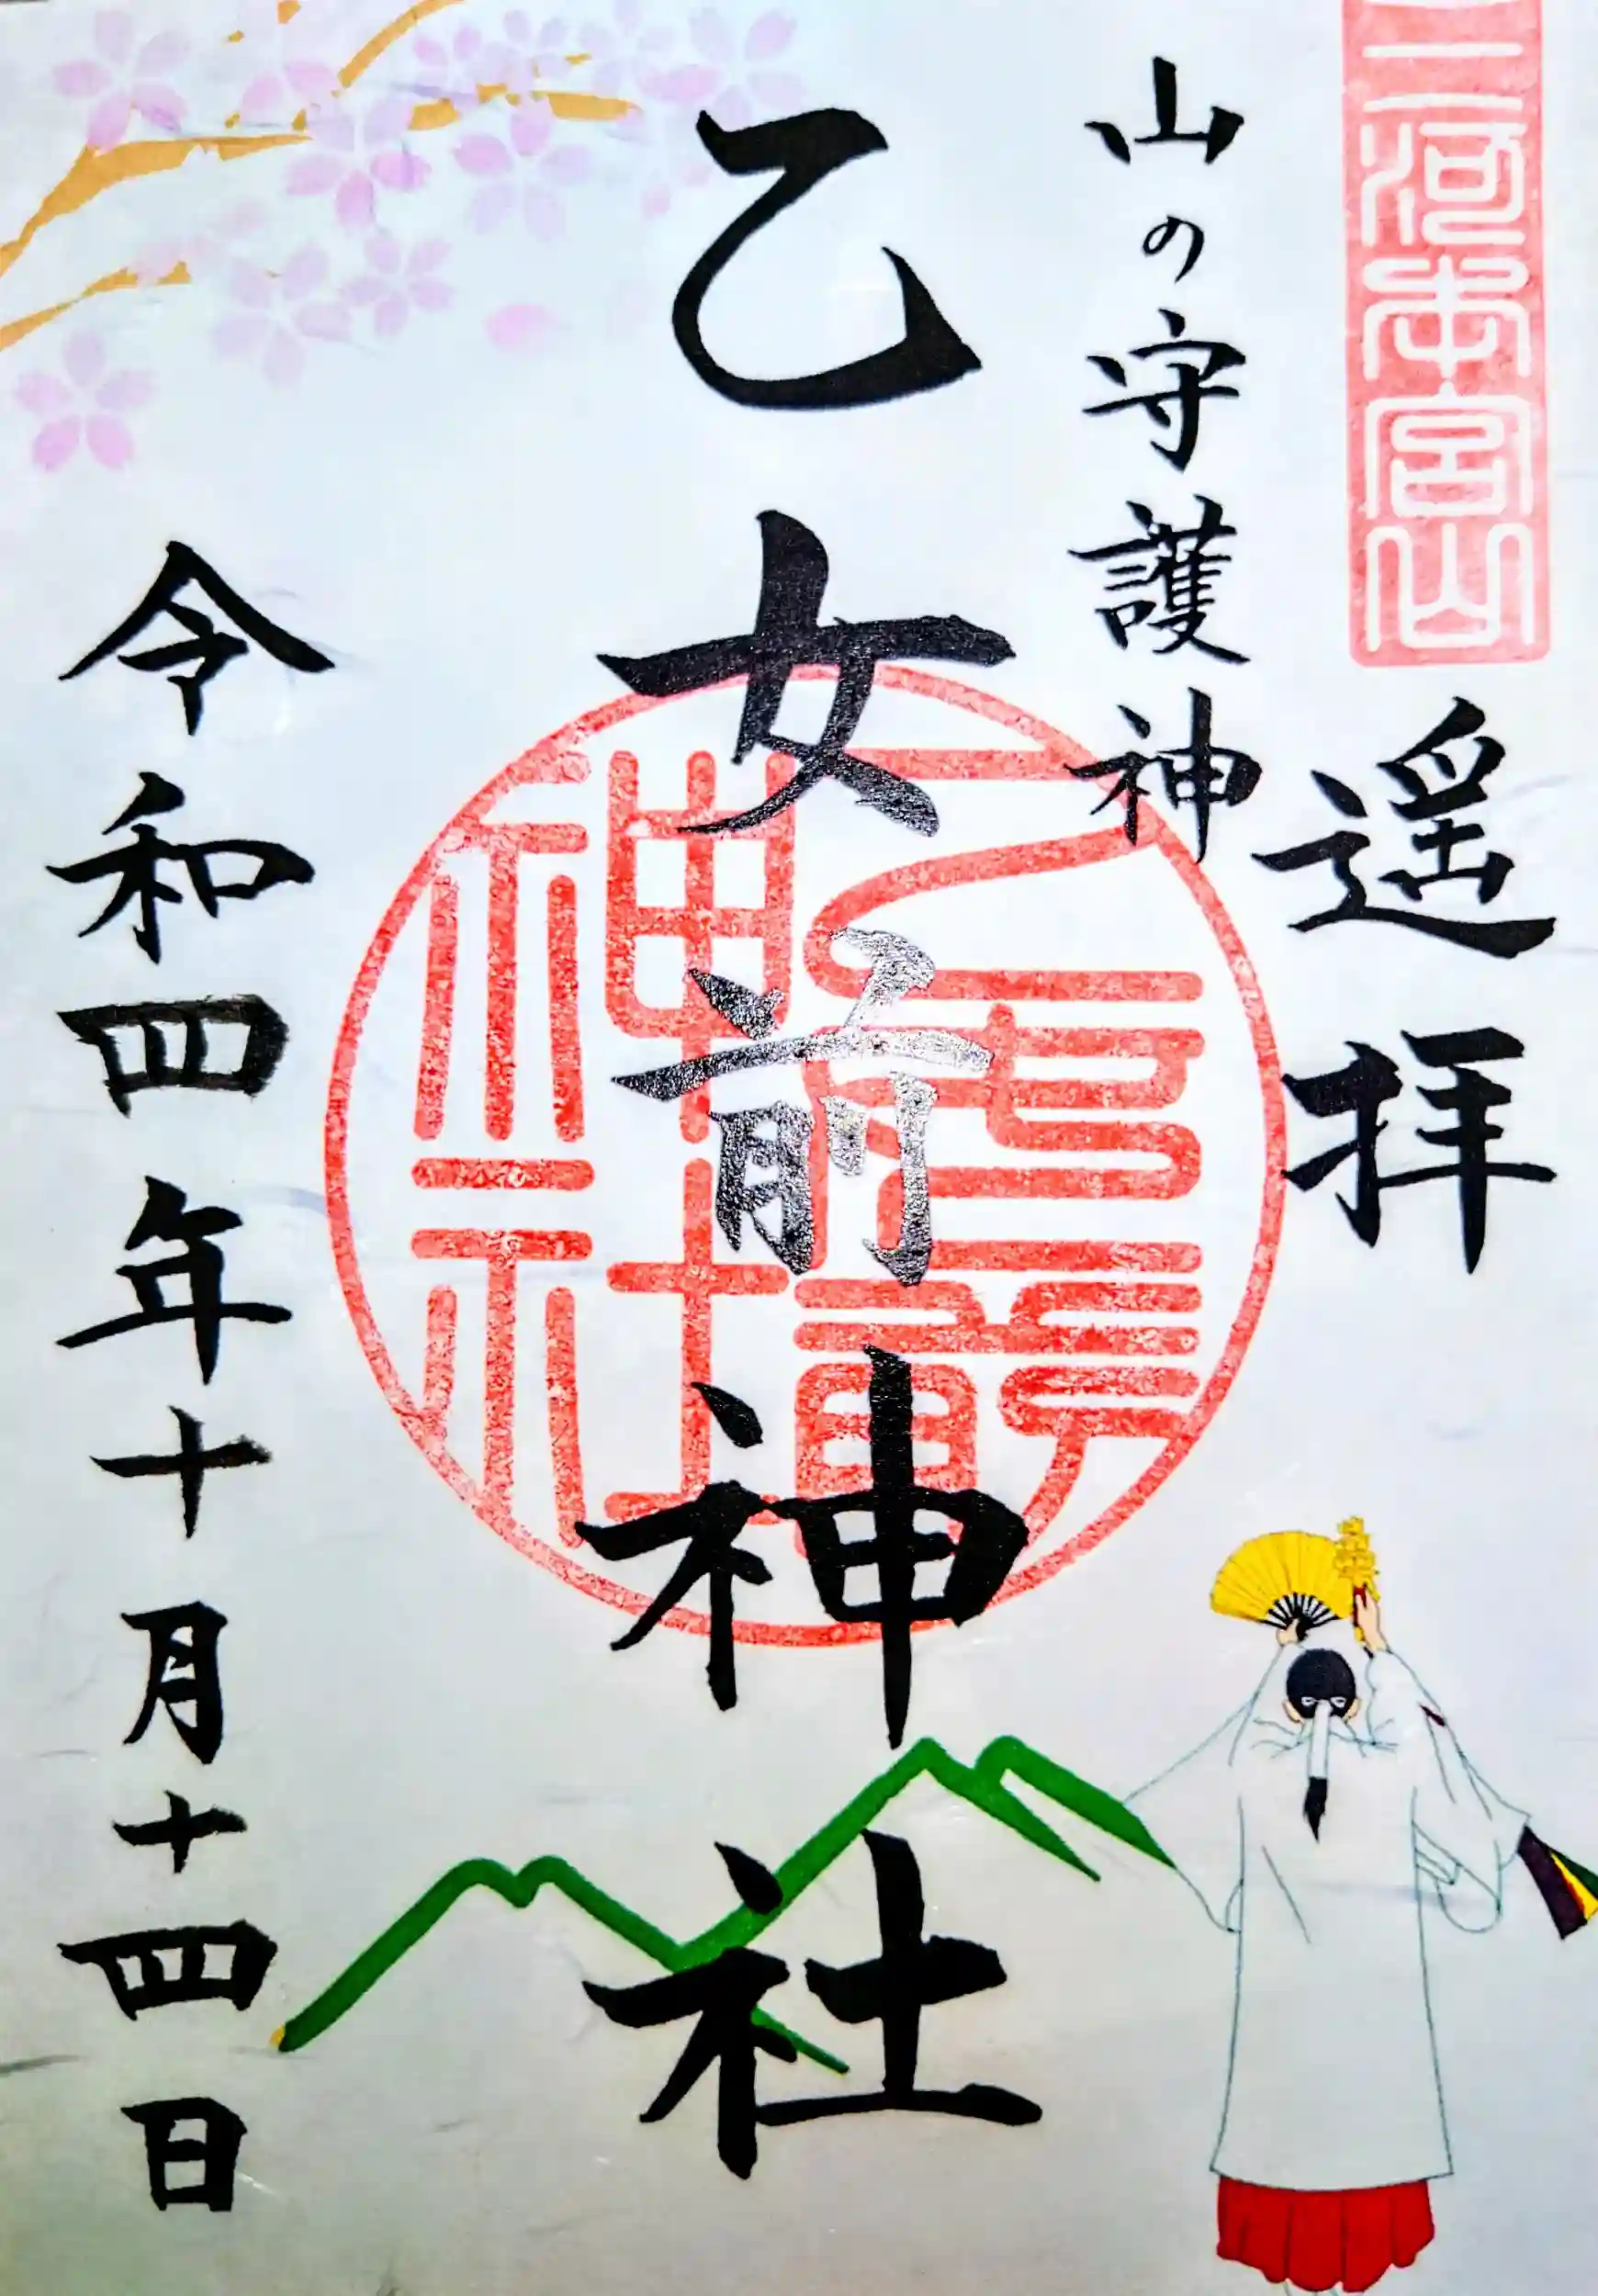 三河本宮山
遥拝
山の守護神
乙女前神社
令和四年十月十四日